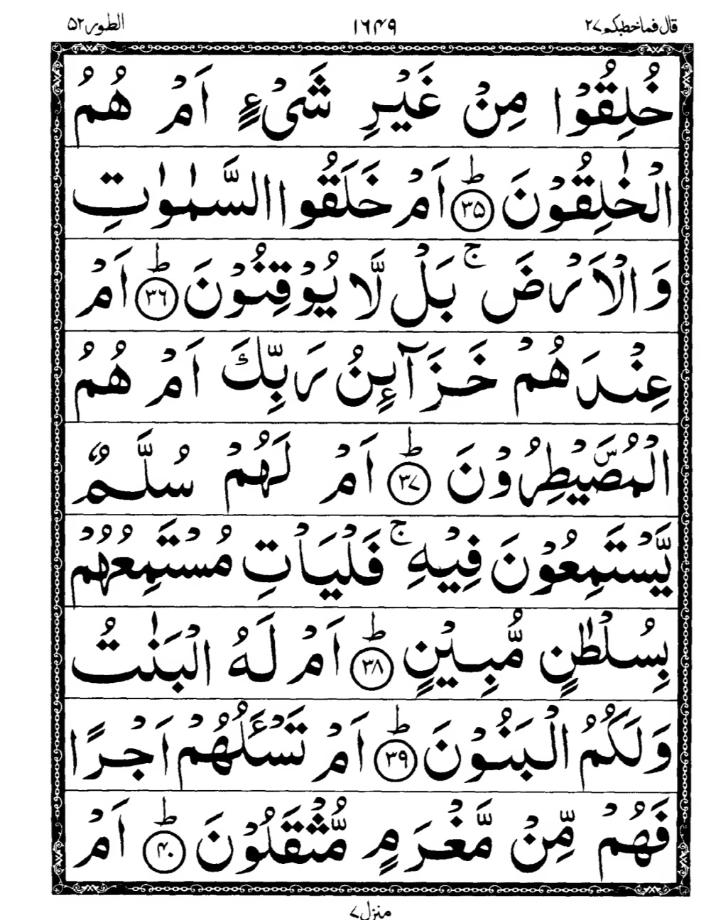 قال فما خطبكم ٢٧ ١٦٤٩ الطور ٥٢
خُلِقُوۡا مِنۡ غَيۡرِ شَىۡءٍ اَمۡ هُمُ
الۡخٰلِقُوۡنَ ؕ‏ ﴿۳۵﴾ اَمۡ خَلَقُوا السَّمٰوٰتِ
وَالۡاَرۡضَ‌ ۚ بَلۡ لَّا يُوۡقِنُوۡنَ ؕ‏ ﴿۳۶﴾ اَمۡ
عِنۡدَهُمۡ خَزَآٮِٕنُ رَبِّكَ اَمۡ هُمُ
الۡمُصَۜيۡطِرُوۡنَ ؕ‏ ﴿۳۷﴾ اَمۡ لَهُمۡ سُلَّمٌ
يَّسۡتَمِعُوۡنَ فِيۡهِ‌ ۚ فَلۡيَاۡتِ مُسۡتَمِعُهُمۡ
بِسُلۡطٰنٍ مُّبِيۡنٍ ؕ‏ ﴿۳۸﴾ اَمۡ لَهُ الۡبَنٰتُ
وَلَكُمُ الۡبَنُوۡنَ ؕ‏ ﴿۳۹﴾ اَمۡ تَسۡـَٔـلُهُمۡ اَجۡرًا
فَهُمۡ مِّنۡ مَّغۡرَمٍ مُّثۡقَلُوۡنَ ؕ‏ ﴿۴۰﴾ اَمۡ
منزل ٧